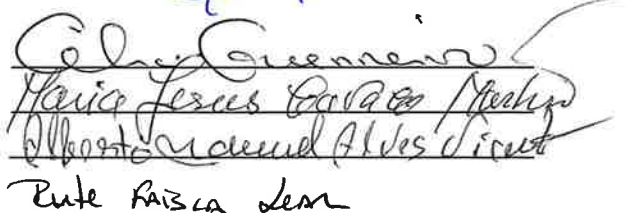 Célia Guerreiro
Maria Jesus Cavaco Martins
Alberto Manuel Alves Vicente
Rute Faísca Leal